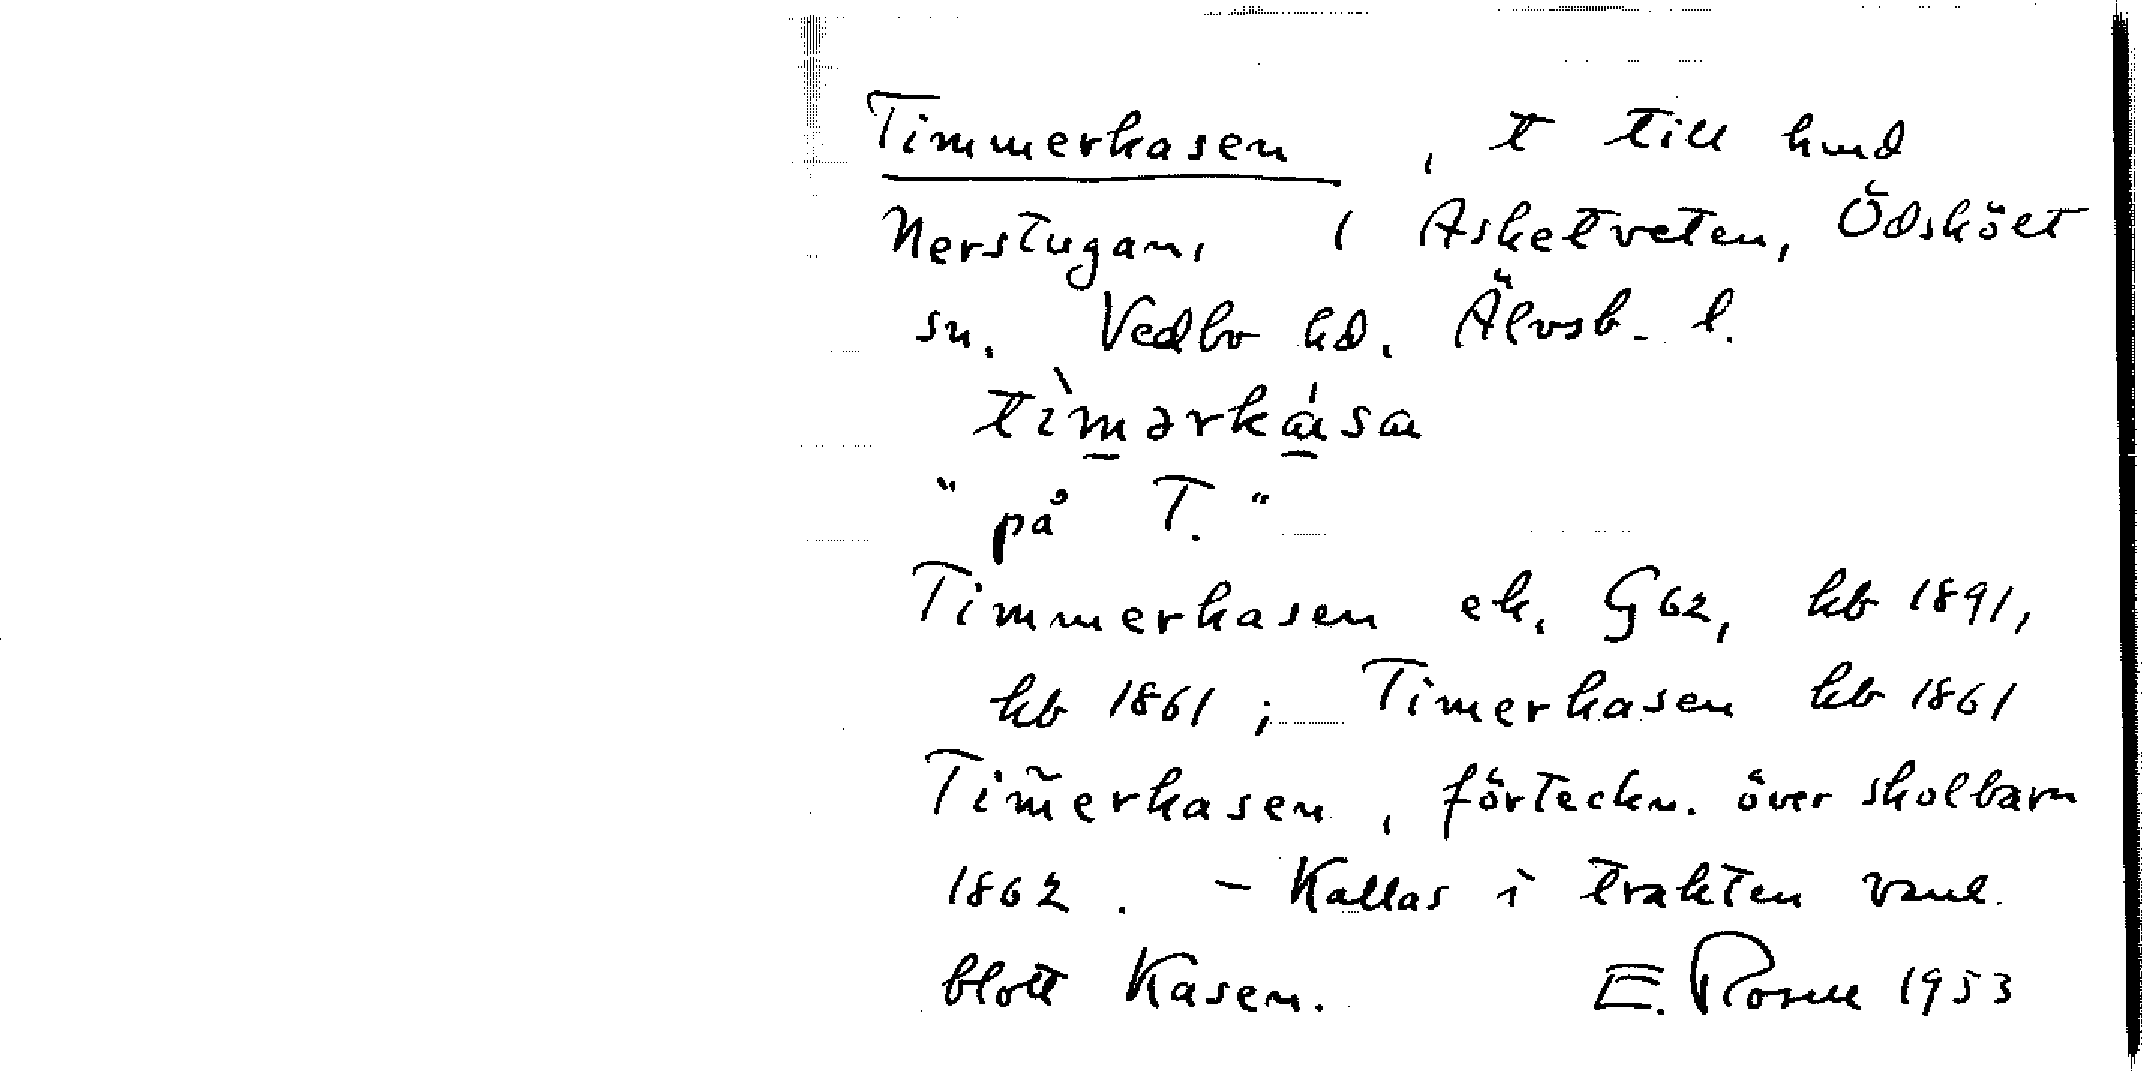 Timmerkasen, t till hmd
Nerstugan, i Asketveten, Ödskölt
sn. Vedbo hd. Älvsb. l.
tìmərkása
"på T."
Timmerkasen ek. G 62, kb 1891,
kb 1861; Timerkasen kb 1861
Tim̃erkasen, förteckn. över skolbarn
1862. - Kallas i trakten vanl.
blott Kasen. E. Rosell 1953